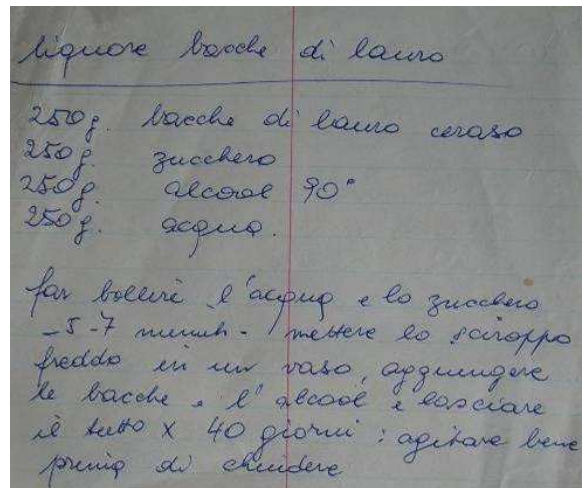 liquore bacche di lauro
250 g. bacche di lauro ceraso
250 g. zucchero
250 g. alcool 90°
250 g. acqua.
far bollire l'acqua e lo zucchero
- 5 - 7 minuti - mettere lo sciroppo
freddo in un vaso, aggiungere
le bacche e l'alcool e lasciare
il tutto x 40 giorni : agitare bene
prima di chiudere